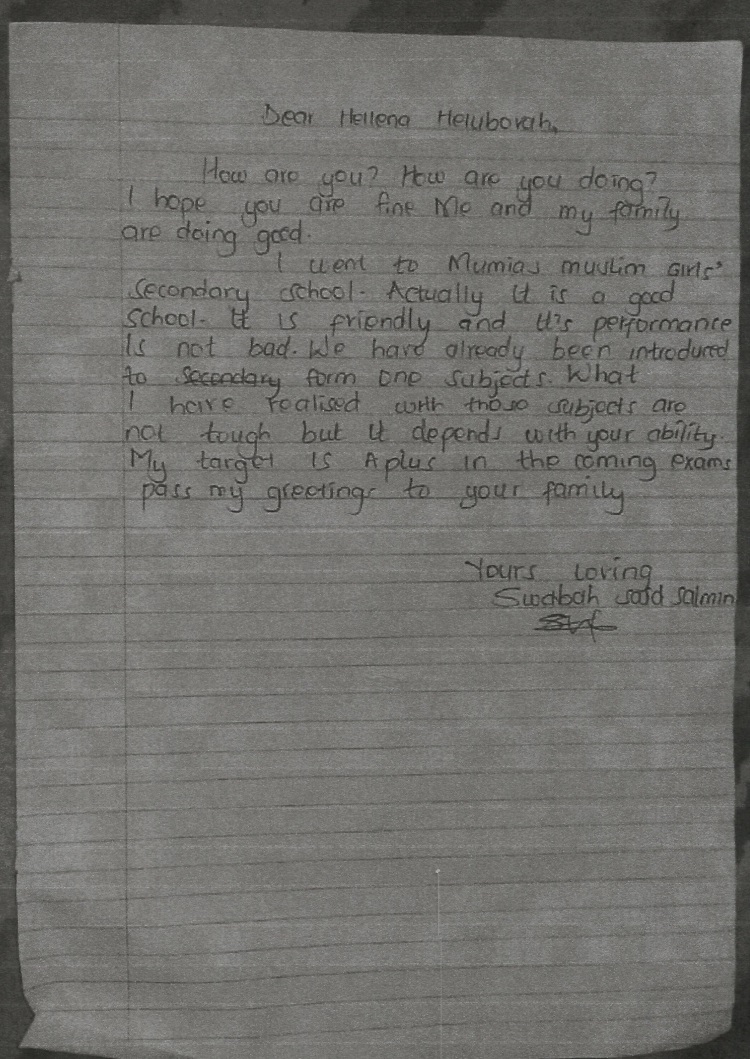 Dear Hellena Heluborah,
How are you? How are you doing?
I hope you are fine Me and my family
are doing good.
I went to Mumias muslim Girls'
Secondary school. Actually it is a good
School. It is friendly and it's performance
is not bad. We have already been introduced
to secondary form one subjects. What
I have realised with those subjects are
not tough but it depends with your ability.
My target is A plus in the coming exams
pass my greetings to your family
Yours loving
Swabah said salmin